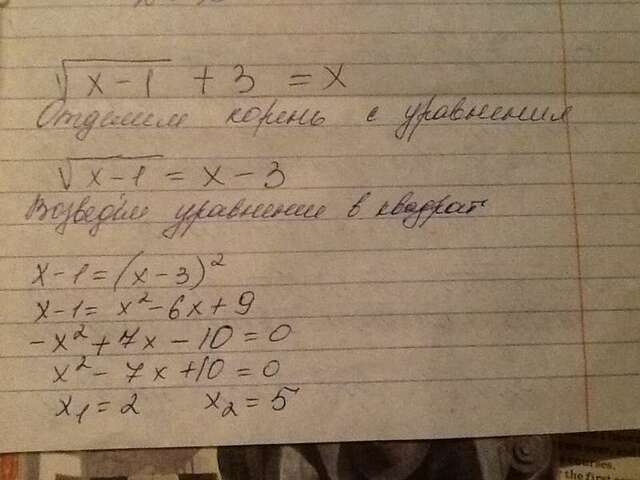 √(x-1) + 3 = x
Отделим корень с уравнения
√(x-1) = x-3
Возведём уравнение в квадрат
x-1=(x-3)²
x-1= x²-6x+9
-x²+7x-10=0
x²-7x+10=0
x₁=2 x₂=5
courses.
the first